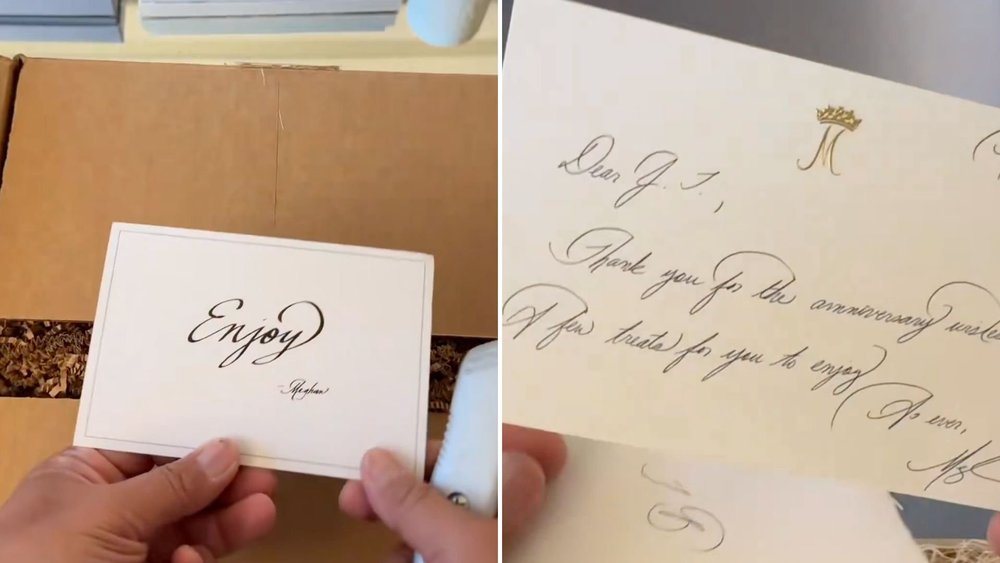 Enjoy
- Meghan
M
Dear J. T.,
Thank you for the anniversary
A few treats for you to enjoy
As ever,